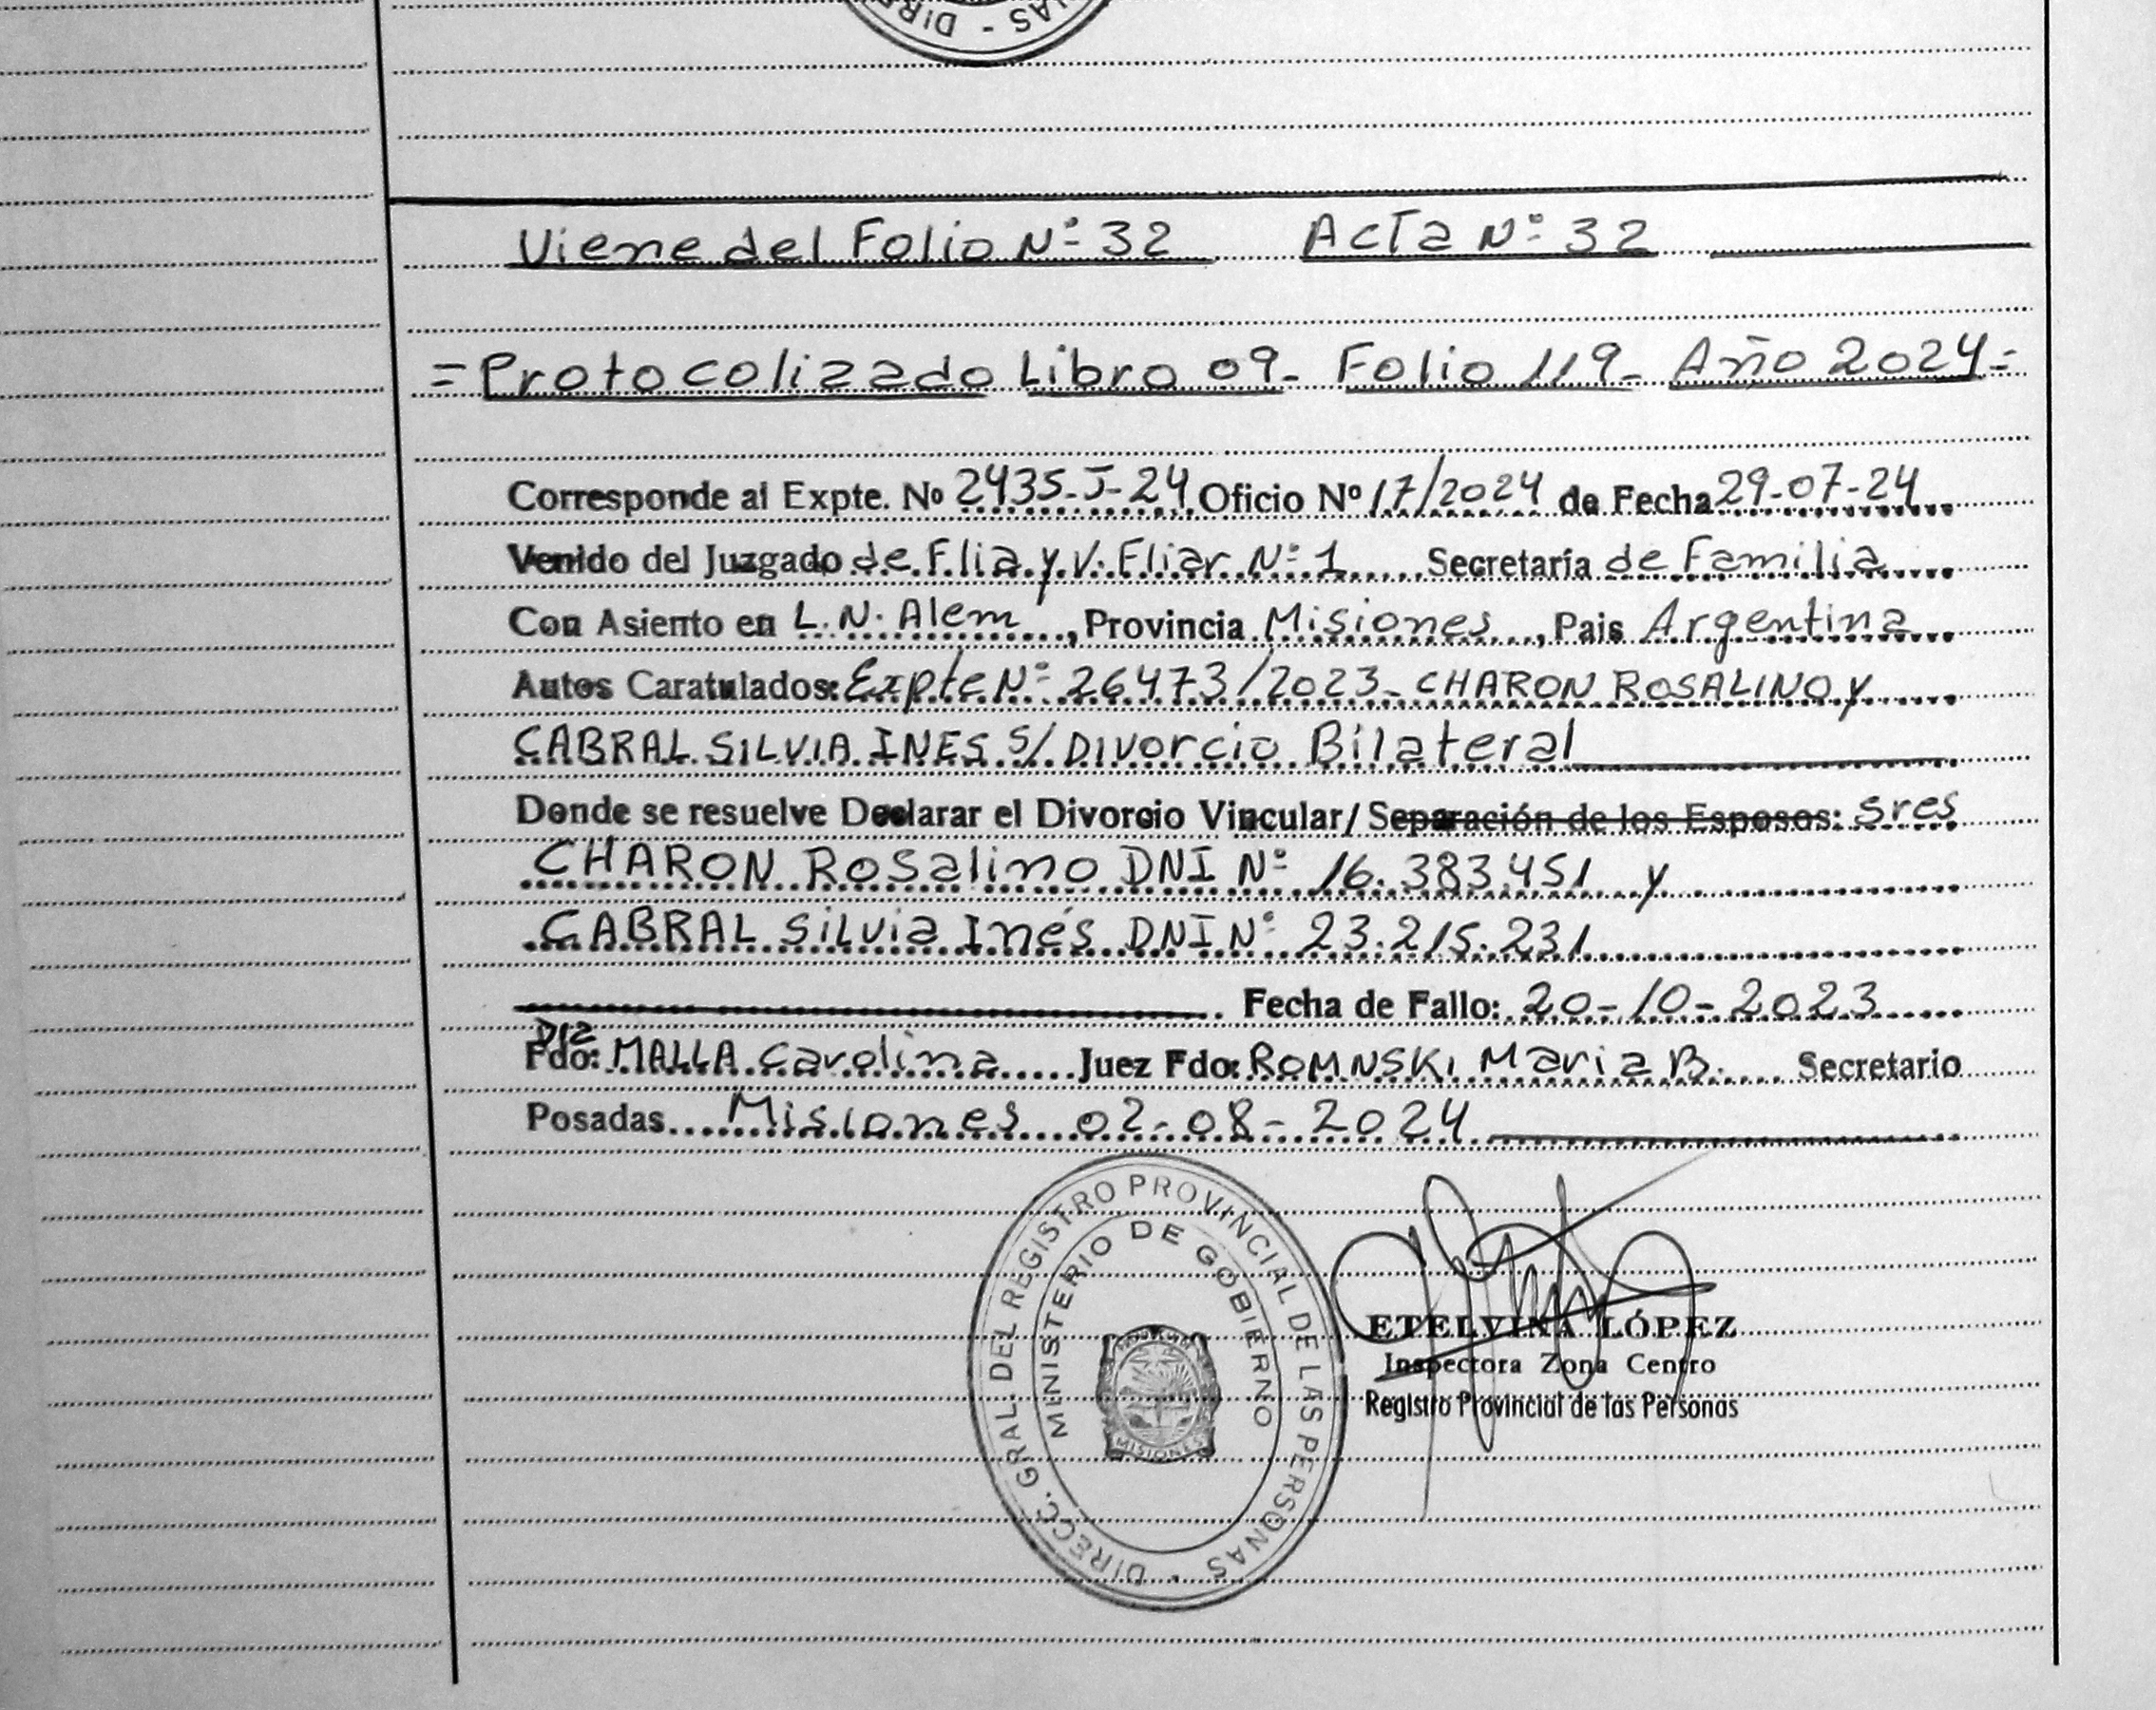 DIRE - NAS
Viene del Folio Nº 32 Acta Nº 32
= Protocolizado Libro 09- Folio 119- Año 2024=
Corresponde al Expte. Nº 2435-J-24 Oficio Nº 17/2024 de Fecha 29-07-24
Venido del Juzgado de Flia y V. Fliar Nº 1 Secretaría de Familia
Con Asiento en L.N. Alem, Provincia Misiones, Pais Argentina
Autos Caratulados: Expte Nº 26473/2023- CHARON ROSALINO y
CABRAL SILVIA INES s/ Divorcio Bilateral
Donde se resuelve Declarar el Divorcio Vincular/ Separación de los Esposos: sres
CHARON Rosalino DNI Nº 16.383.451 y
CABRAL Silvia Inés DNI Nº 23.215.231
Fecha de Fallo: 20-10-2023
Fdo: MALLA Carolina Juez Fdo: ROMNSKI Maria B. Secretario
Posadas Misiones 02-08-2024
DIRECC. GRAL. DEL REGISTRO PROVINCIAL DE LAS PERSONAS
MINISTERIO DE GOBIERNO
MISIONES
ETELVINA LÓPEZ
Inspectora Zona Centro
Registro Provincial de las Personas